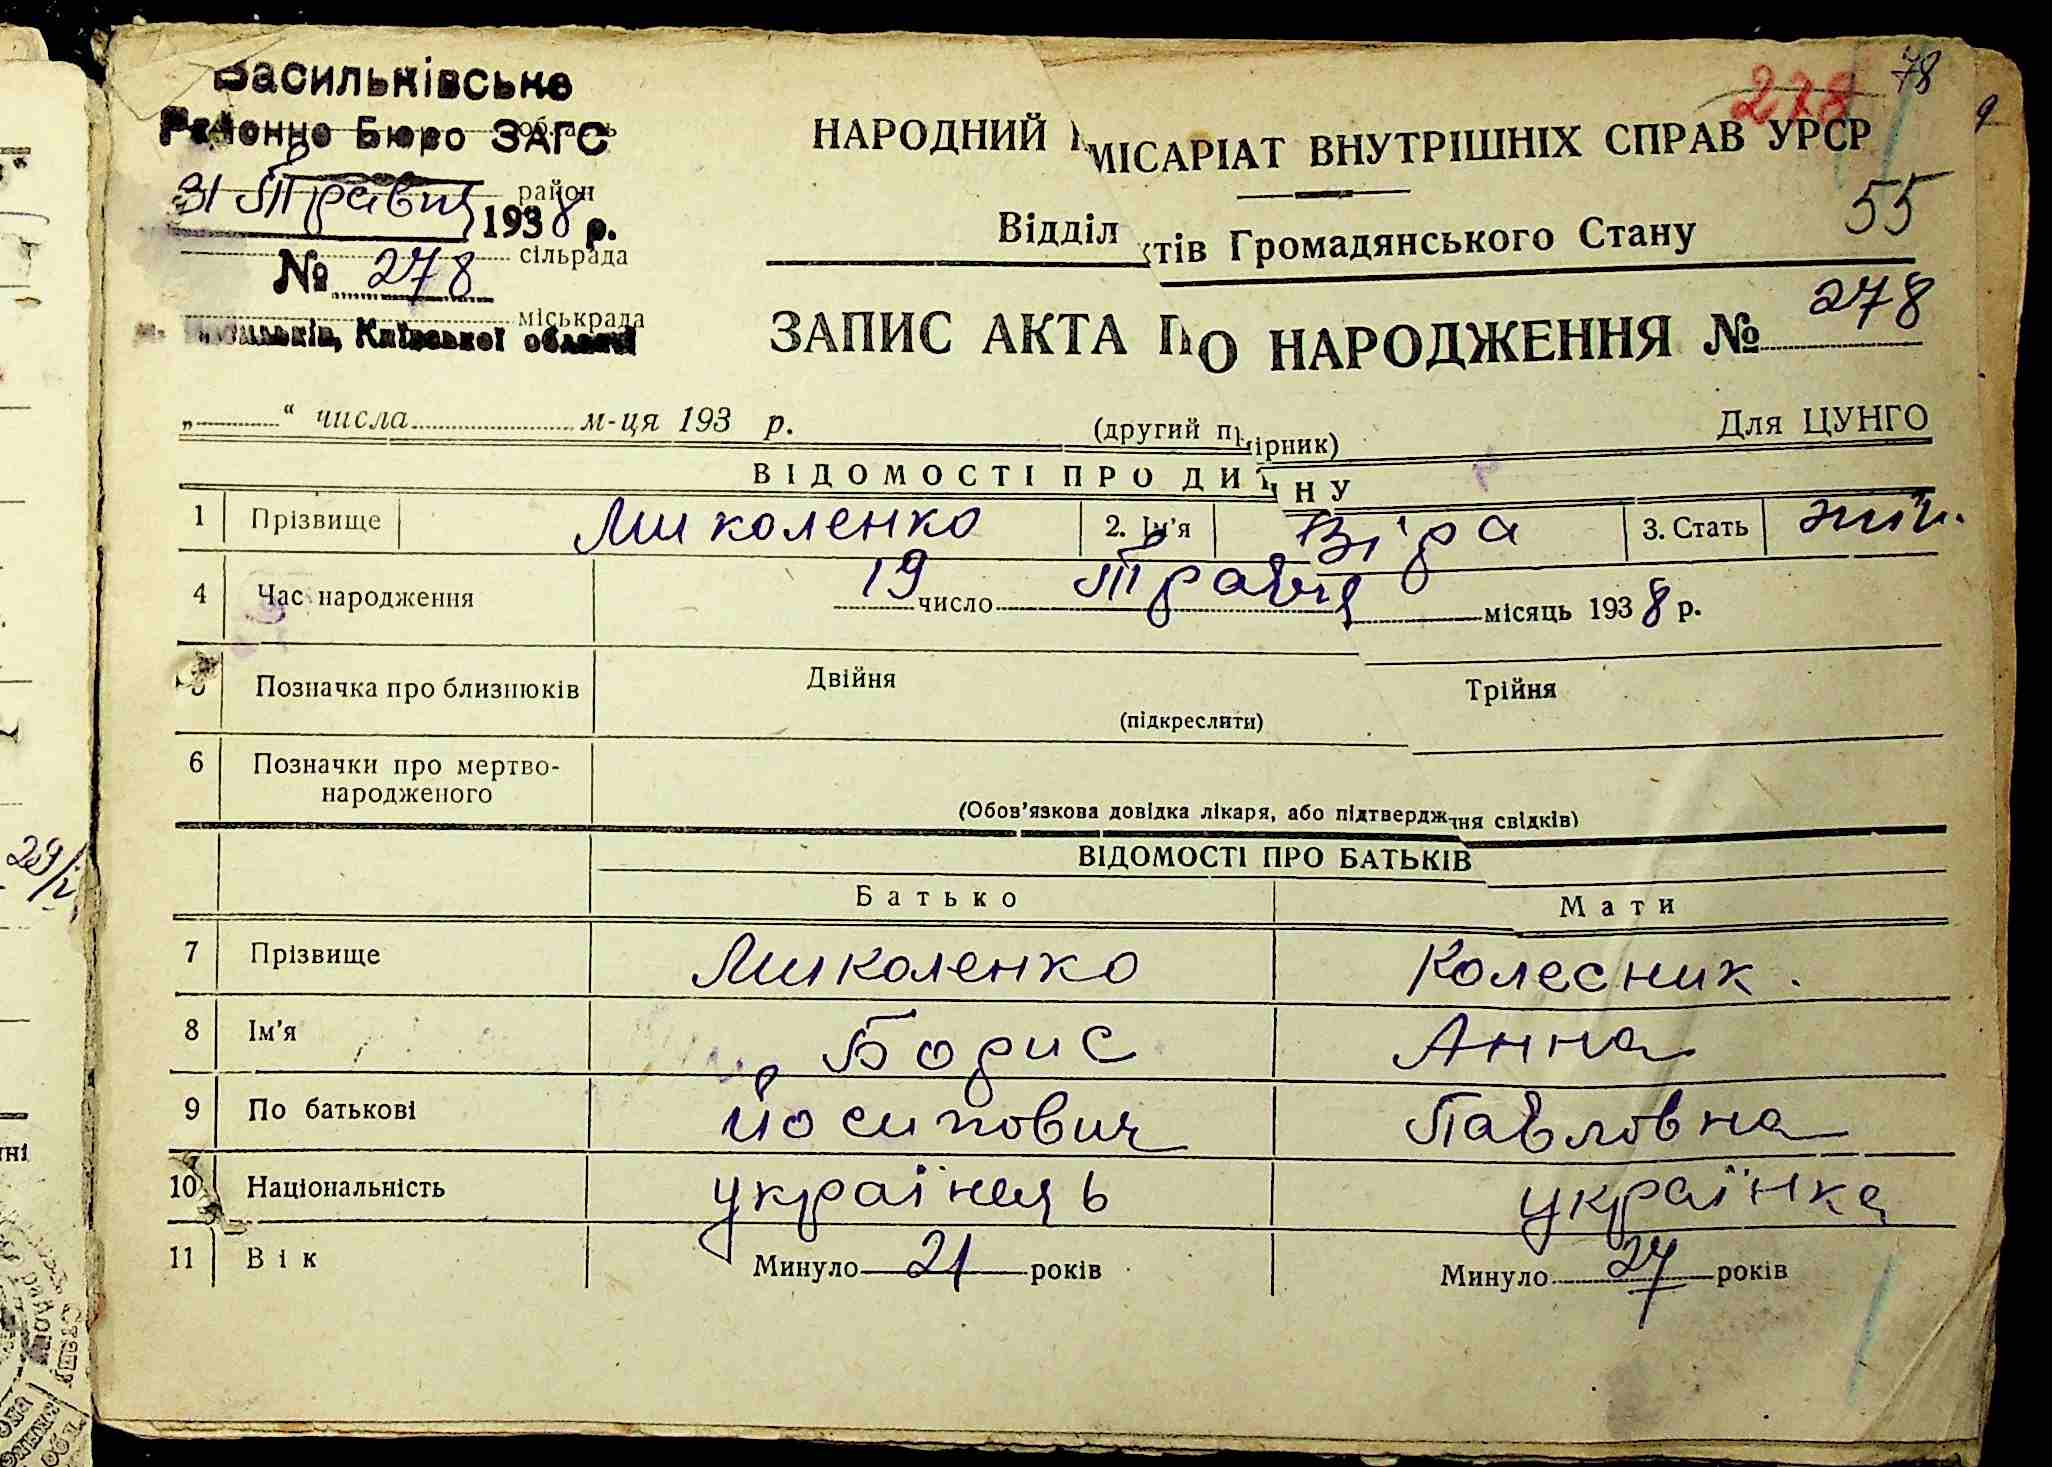 Васильківське
Районне Бюро ЗАГС
область
31 Травня 1938 р.
район
№ 278
сільрада
міськрада
м. Васильків, Київської області
278
78
9
НАРОДНИЙ КОМІСАРІАТ ВНУТРІШНІХ СПРАВ УРСР
55
Відділ Актів Громадянського Стану
ЗАПИС АКТА ПРО НАРОДЖЕННЯ № 278
„ “ числа м-ця 193 р.
(другий примірник)
Для ЦУНГО
ВІДОМОСТІ ПРО ДИТИНУ
1 Прізвище Миколенко 2. Ім'я Віра 3. Стать жін.
4 Час народження 19 число Травня місяць 1938 р.
5 Позначка про близнюків Двійня Трійня
(підкреслити)
6 Позначки про мертво-
народженого
(Обов'язкова довідка лікаря, або підтвердження свідків)
ВІДОМОСТІ ПРО БАТЬКІВ
Батько Мати
7 Прізвище Миколенко Колесник.
8 Ім'я Борис Анна
9 По батькові Йосипович Павловна
10 Національність українець українка
11 Вік Минуло 21 років Минуло 27 років
29/V